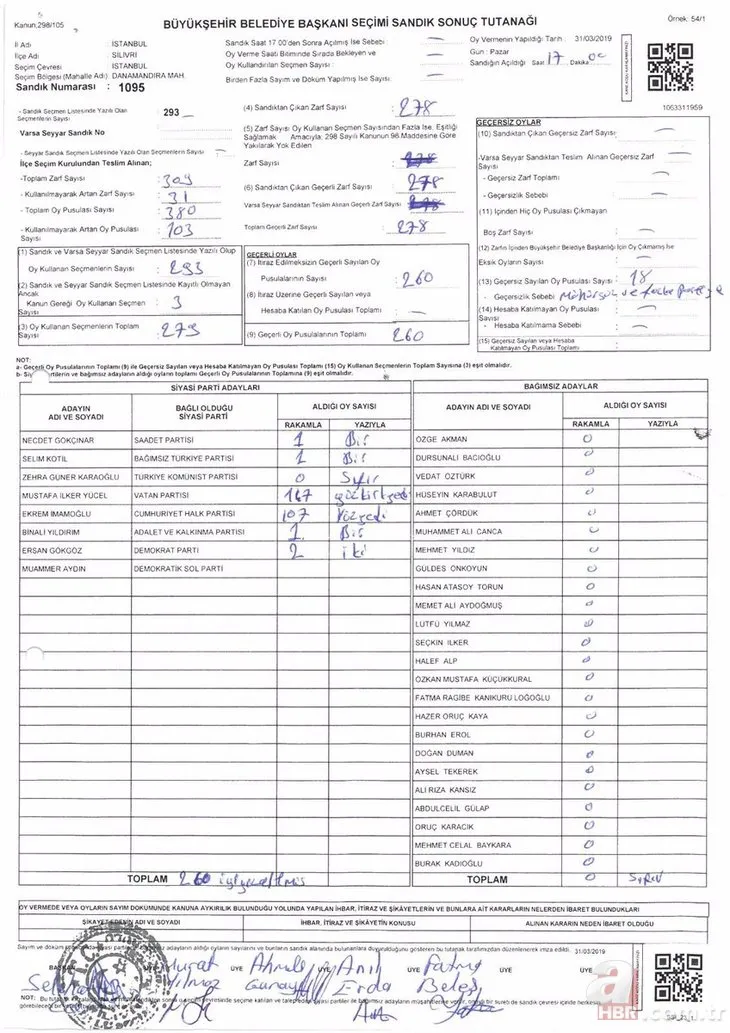 Kanun,298/105
BÜYÜKŞEHİR BELEDİYE BAŞKANI SEÇİMİ SANDIK SONUÇ TUTANAĞI
Örnek: 54/1
İl Adı : İSTANBUL
İlçe Adı : SİLİVRİ
Seçim Çevresi : İSTANBUL
Seçim Bölgesi (Mahalle Adı) DANAMANDIRA MAH.
Sandık Numarası : 1095
Sandık Saat 17 00'den Sonra Açılmış İse Sebebi :
Oy Verme Saati Bitiminde Sırada Bekleyen ve
Oy Kullandırılan Seçmen Sayısı :
Birden Fazla Sayım ve Döküm Yapılmış İse Sayısı :
Oy Vermenin Yapıldığı Tarih : 31/03/2019
Gün : Pazar
Sandığın Açıldığı Saat 17 Dakika 00
1063311959
- Sandık Seçmen Listesinde Yazılı Olan Seçmenlerin Sayısı : 293
Varsa Seyyar Sandık No
- Seyyar Sandık Seçmen Listesinde Yazılı Olan Seçmenlerin Sayısı :
İlçe Seçim Kurulundan Teslim Alınan;
-Toplam Zarf Sayısı : 309
- Kullanılmayarak Artan Zarf Sayısı : 31
- Toplam Oy Pusulası Sayısı : 380
- Kullanılmayarak Artan Oy Pusulası Sayısı : 103
(1) Sandık ve Varsa Seyyar Sandık Seçmen Listesinde Yazılı Olup
Oy Kullanan Seçmenlerin Sayısı : 293
(2) Sandık ve Seyyar Sandık Seçmen Listesinde Kayıtlı Olmayan Ancak
Kanun Gereği Oy Kullanan Seçmen Sayısı : 3
(3) Oy Kullanan Seçmenlerin Toplam Sayısı : 279
(4) Sandıktan Çıkan Zarf Sayısı : 278
(5) Zarf Sayısı Oy Kullanan Seçmen Sayısından Fazla İse, Eşitliği
Sağlamak Amacıyla; 298 Sayılı Kanunun 98 Maddesine Göre
Yakılarak Yok Edilen
Zarf Sayısı :
(6) Sandıktan Çıkan Geçerli Zarf Sayısı : 278
Varsa Seyyar Sandıktan Teslim Alınan Geçerli Zarf Sayısı :
Toplam Geçerli Zarf Sayısı : 278
GEÇERLİ OYLAR
(7) İtiraz Edilmeksizin Geçerli Sayılan Oy
Pusulalarının Sayısı : 260
(8) İtiraz Üzerine Geçerli Sayılan veya
Hesaba Katılan Oy Pusulaları Toplamı :
(9) Geçerli Oy Pusulalarının Toplamı : 260
GEÇERSİZ OYLAR
(10) Sandıktan Çıkan Geçersiz Zarf Sayısı :
-Varsa Seyyar Sandıktan Teslim Alınan Geçersiz Zarf Sayısı :
- Geçersiz Zarf Toplamı :
- Geçersizlik Sebebi :
(11) İçinden Hiç Oy Pusulası Çıkmayan
Boş Zarf Sayısı :
(12) Zarfın İçinden Büyükşehir Belediye Başkanlığı İçin Oy Çıkmamış İse
Eksik Oyların Sayısı :
(13) Geçersiz Sayılan Oy Pusulası Sayısı : 18
- Geçersizlik Sebebi :
(14) Hesaba Katılmayan Oy Pusulası Sayısı :
- Hesaba Katılmama Sebebi :
(15) Geçersiz Sayılan veya Hesaba Katılmayan Oy Pusulası Toplamı :
NOT:
a- Geçerli Oy Pusulalarının Toplamı (9) ile Geçersiz Sayılan veya Hesaba Katılmayan Oy Pusulası Toplamı (15) Oy Kullanan Seçmenlerin Toplam Sayısına (3) eşit olmalıdır.
b- Siyasi partilerin ve bağımsız adayların aldığı oyların toplamı Geçerli Oy Pusulalarının Toplamına (9) eşit olmalıdır.
SİYASİ PARTİ ADAYLARI
BAĞIMSIZ ADAYLAR
ADAYIN ADI VE SOYADI
BAĞLI OLDUĞU SİYASİ PARTİ
ALDIĞI OY SAYISI
RAKAMLA YAZIYLA
ADAYIN ADI VE SOYADI
ALDIĞI OY SAYISI
RAKAMLA YAZIYLA
NECDET GÖKÇINAR SAADET PARTİSİ 1 Bir
SELİM KOTİL BAĞIMSIZ TÜRKİYE PARTİSİ 1 Bir
ZEHRA GÜNER KARAOĞLU TÜRKİYE KOMÜNİST PARTİSİ 0 Sıfır
MUSTAFA İLKER YÜCEL VATAN PARTİSİ 147
EKREM İMAMOĞLU CUMHURİYET HALK PARTİSİ 107 Yüzyedi
BİNALİ YILDIRIM ADALET VE KALKINMA PARTİSİ 1 Bir
ERSAN GÖKGÖZ DEMOKRAT PARTİ 2 iki
MUAMMER AYDIN DEMOKRATİK SOL PARTİ
ÖZGE AKMAN 0
DURSUNALİ BACIOĞLU 0
VEDAT ÖZTÜRK 0
HÜSEYİN KARABULUT 0
AHMET ÇÖRDÜK 0
MUHAMMET ALİ CANCA 0
MEHMET YILDIZ 0
GÜLDES ÖNKOYUN 0
HASAN ATASOY TORUN 0
MEMET ALİ AYDOĞMUŞ 0
LÜTFÜ YILMAZ 0
SEÇKİN İLKER 0
HALEF ALP 0
ÖZKAN MUSTAFA KÜÇÜKKURAL 0
FATMA RAGİBE KANIKURU LOĞOĞLU 0
HAZER ORUÇ KAYA 0
BURHAN EROL 0
DOĞAN DUMAN 0
AYSEL TEKEREK 0
ALİ RIZA KANSIZ 0
ABDULCELİL GÜLAP 0
ORUÇ KARACIK 0
MEHMET CELAL BAYKARA 0
BURAK KADIOĞLU 0
TOPLAM 260
TOPLAM 0
OY VERMEDE VEYA OYLARIN SAYIM DÖKÜMÜNDE KANUNA AYKIRILIK BULUNDUĞU YOLUNDA YAPILAN İHBAR, İTİRAZ VE ŞİKAYETLERİN VE BUNLARA AİT KARARLARIN NELERDEN İBARET BULUNDUKLARI
ŞİKAYET EDENİN ADI VE SOYADI
İHBAR, İTİRAZ VE ŞİKAYETİN KONUSU
ALINAN KARARIN NEDEN İBARET OLDUĞU
31/03/2019
BAŞKAN
Murat Yılmaz
ÜYE
ÜYE
Anıl Erda
ÜYE
Fatma
a HBR.com.tr